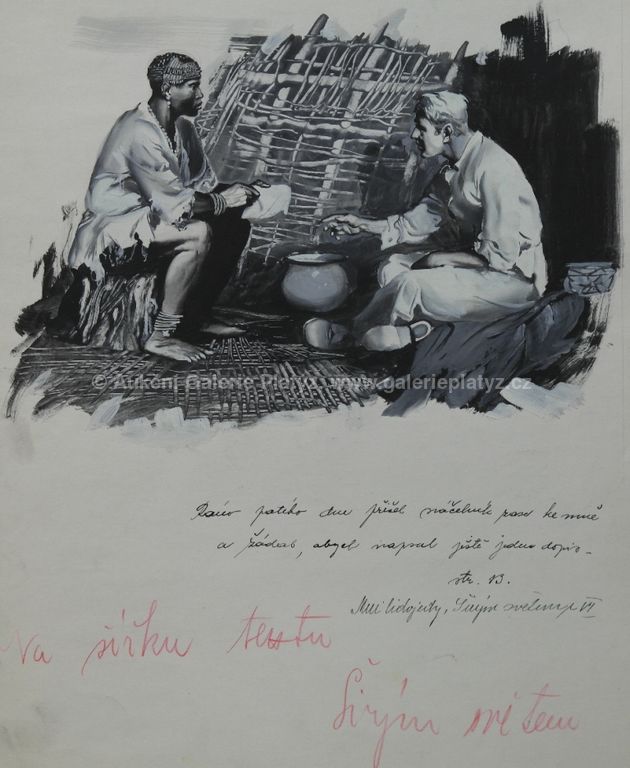 © Aukční Galerie Platýz, www.galerieplatyz.cz
Ráno pátého dne přišel náčelník zase ke mně
a žádal, abych napsal ještě jeden dopis.
str. 13.
Mezi lidojedy, Širým světem VI
Na šířku textu
Širým světem